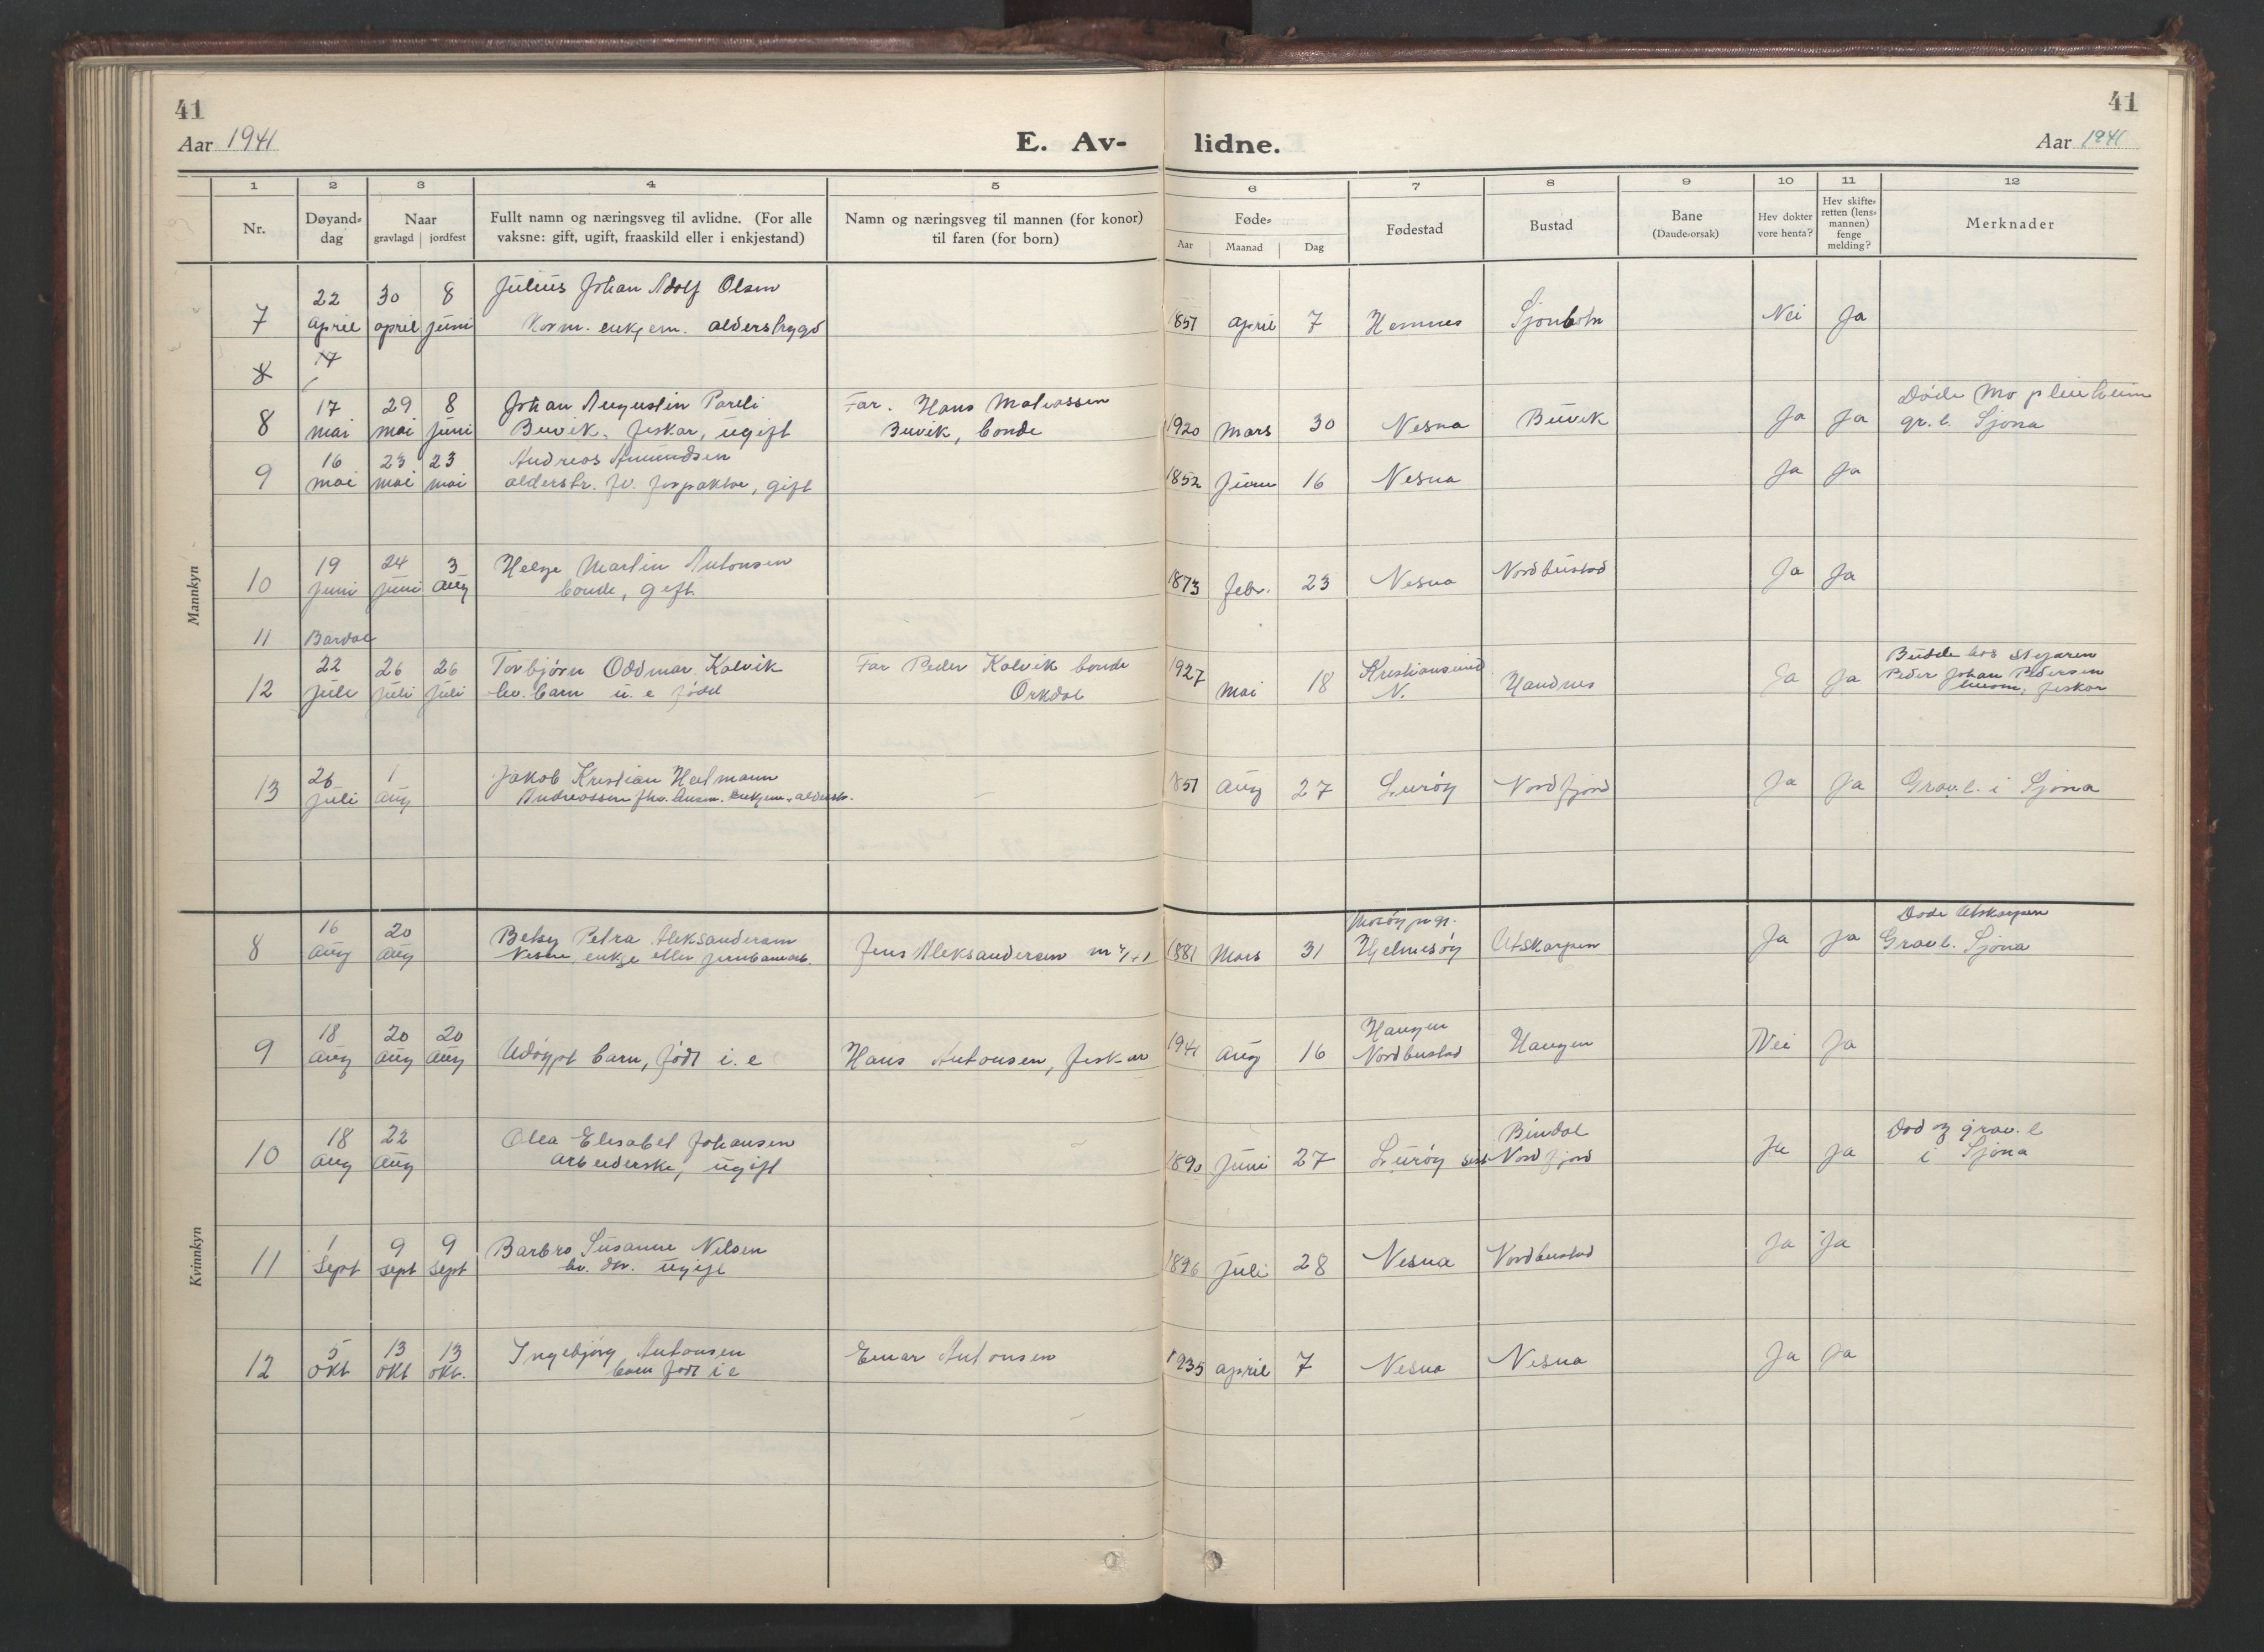 41
Aar 1941
E. Av-
lidne.
41
Aar 1941
1 2 3 4 5 6 7 8 9 10 11 12
Nr.
Døyand-dag
Naar
gravlagd | jordfest
Fullt namn og næringsveg til avlidne. (For alle
vaksne: gift, ugift, fraaskild eller i enkjestand)
Namn og næringsveg til mannen (for konor)
til faren (for born)
Føde-
Aar Maanad Dag
Fødestad
Bustad
Bane
(Daude-orsak)
Hev dokter
vore henta?
Hev skifte-
retten (lens-
mannen)
fenge
melding?
Merknader
Mannkyn
22 30 8 Julius Johan Adolf Olsen
7 april april juni enkjem. alderstrygd 1851 april 7 Hemnes Sjonbotn Nei Ja
8 17
17 29 8 Johan Augustin Pareli Far. Hans Matiassen Døde Mo pleieheim
8 mai mai juni Buvik, fiskar, ugift Buvik, bonde 1920 Mars 30 Nesna Buvik Ja Ja gr.l. Sjona
16 23 23 Andreas Amundsen
9 mai mai mai alderstr. fv. forpaktar, gift 1852 Juni 16 Nesna Ja Ja
19 24 3 Helge Martin Antonsen
10 juni juni aug bonde, gift 1873 febr. 23 Nesna Nordbustad Ja Ja
11 Bardal
22 26 26 Torbjørn Oddmar Kalvik Far Peder Kalvik bonde 1927 Kristiansund Budde hos styraren
12 juli juli juli barn u. e født Orkdal Mai 18 N. Handnes Ja Ja Peder Johan Pedersen
fiskar
26 1 Jakob Kristian Heitmann
13 juli aug Andreassen enkjem. alderstr. 1851 Aug 27 Lurøy Nordfjord Ja Ja Grav.l. i Sjona
Kvinnkyn
16 20 Betsy Petra Aleksandersen Døde Utskarpen
8 aug aug enkje etter jernbanearb. Jens Aleksandersen 1881 Mars 31 Hjelmesøy Utskarpen Ja Ja Gravl. Sjona
18 20 20 Haugen
9 aug aug aug Udøypt barn, født i. e Hans Antonsen, fiskar 1941 aug 16 Nordbustad Haugen Nei Ja
18 22 Olea Elisabet Johansen Bindal Død og grav.l
10 aug aug arbeiderske, ugift Juni 27 Lurøy Nordfjord Ja Ja i Sjona
1 9 9 Barbro Susanne Nilsen
11 Sept sept sept ugift 1896 juli 28 Nesna Nordbustad Ja Ja
5 13 13 Ingebjørg Antonsen Einar Antonsen
12 okt okt okt. barn født i e 1935 april 7 Nesna Nesna Ja Ja